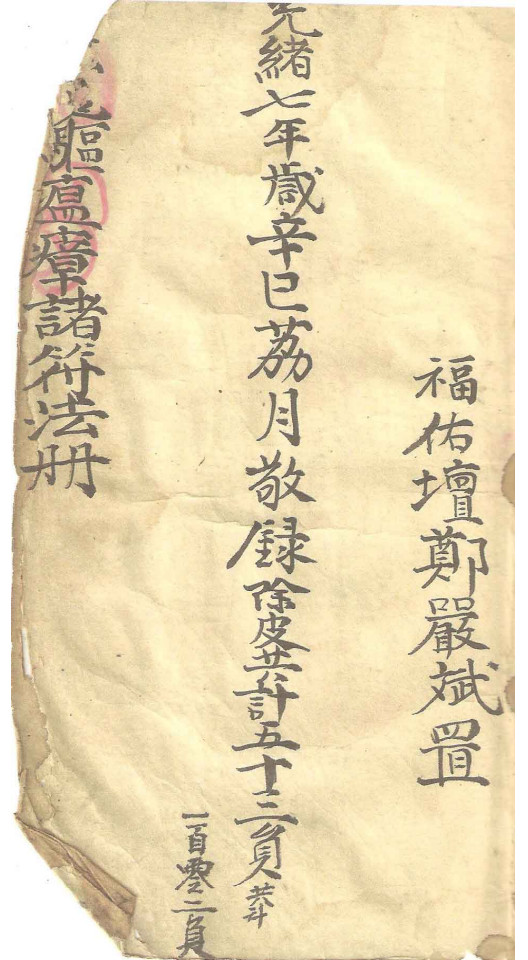 福佑壇鄭嚴斌置
光緒七年歲辛巳荔月敬録除皮共計五十三員共計
一百零二員
驅瘟瘴諸符法册